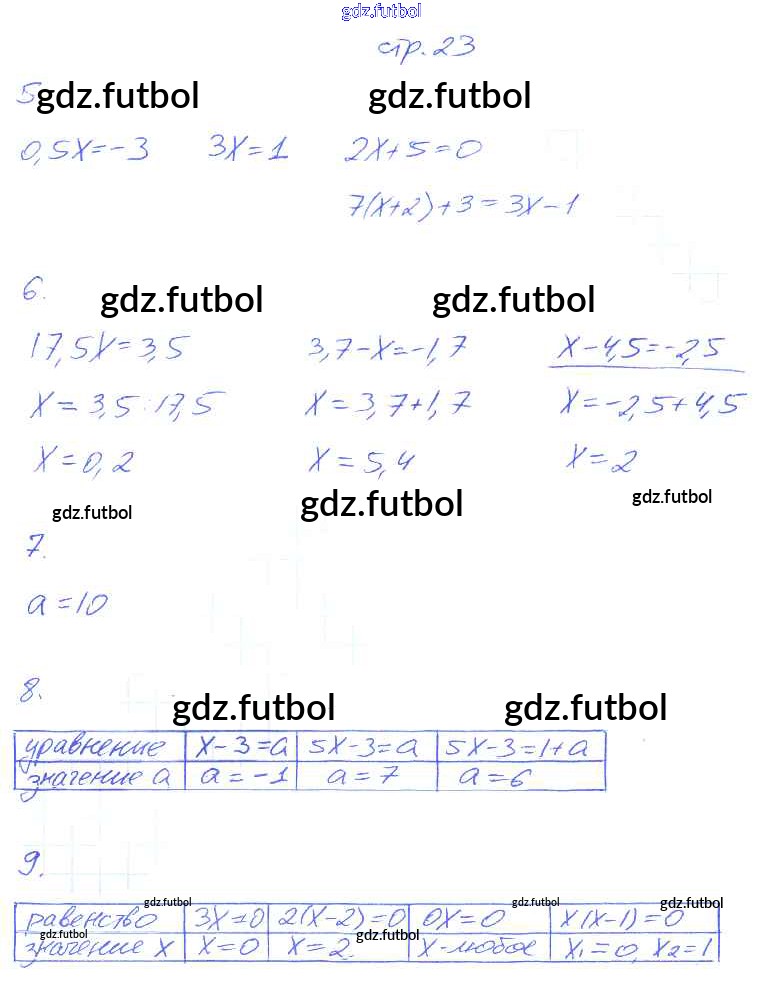 gdz.futbol
стр. 23
5 gdz.futbol gdz.futbol
0,5x=-3 3x=1 2x+5=0
7(x+2)+3=3x-1
6.
gdz.futbol gdz.futbol
17,5x=3,5 3,7-x=-1,7 x-4,5=-2,5
x=3,5:17,5 x=3,7+1,7 x=-2,5+4,5
x=0,2 x=5,4 x=2
gdz.futbol gdz.futbol gdz.futbol
7.
a=10
8.
gdz.futbol gdz.futbol
уравнение x-3=a 5x-3=a 5x-3=1+a
значение a a=-1 a=7 a=6
9.
gdz.futbol gdz.futbol gdz.futbol
равенство 3x=0 2(x-2)=0 0x=0 x(x-1)=0
gdz.futbol gdz.futbol
значение x x=0 x=2. x-любое x₁=0, x₂=1